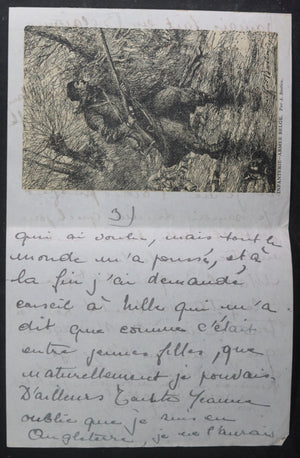 INFANTERIE - ARMÉE BELGE.
3)
qui ai voulu, mais tout le
monde m'a poussé, et à
la fin j'ai demandé
conseil à Mlle qui m'a
dit que comme c'était
entre jeunes filles, que
naturellement je pouvais.
D'ailleurs Tante Jeanne
oublie que je suis en
Angleterre, je ne l'aurais